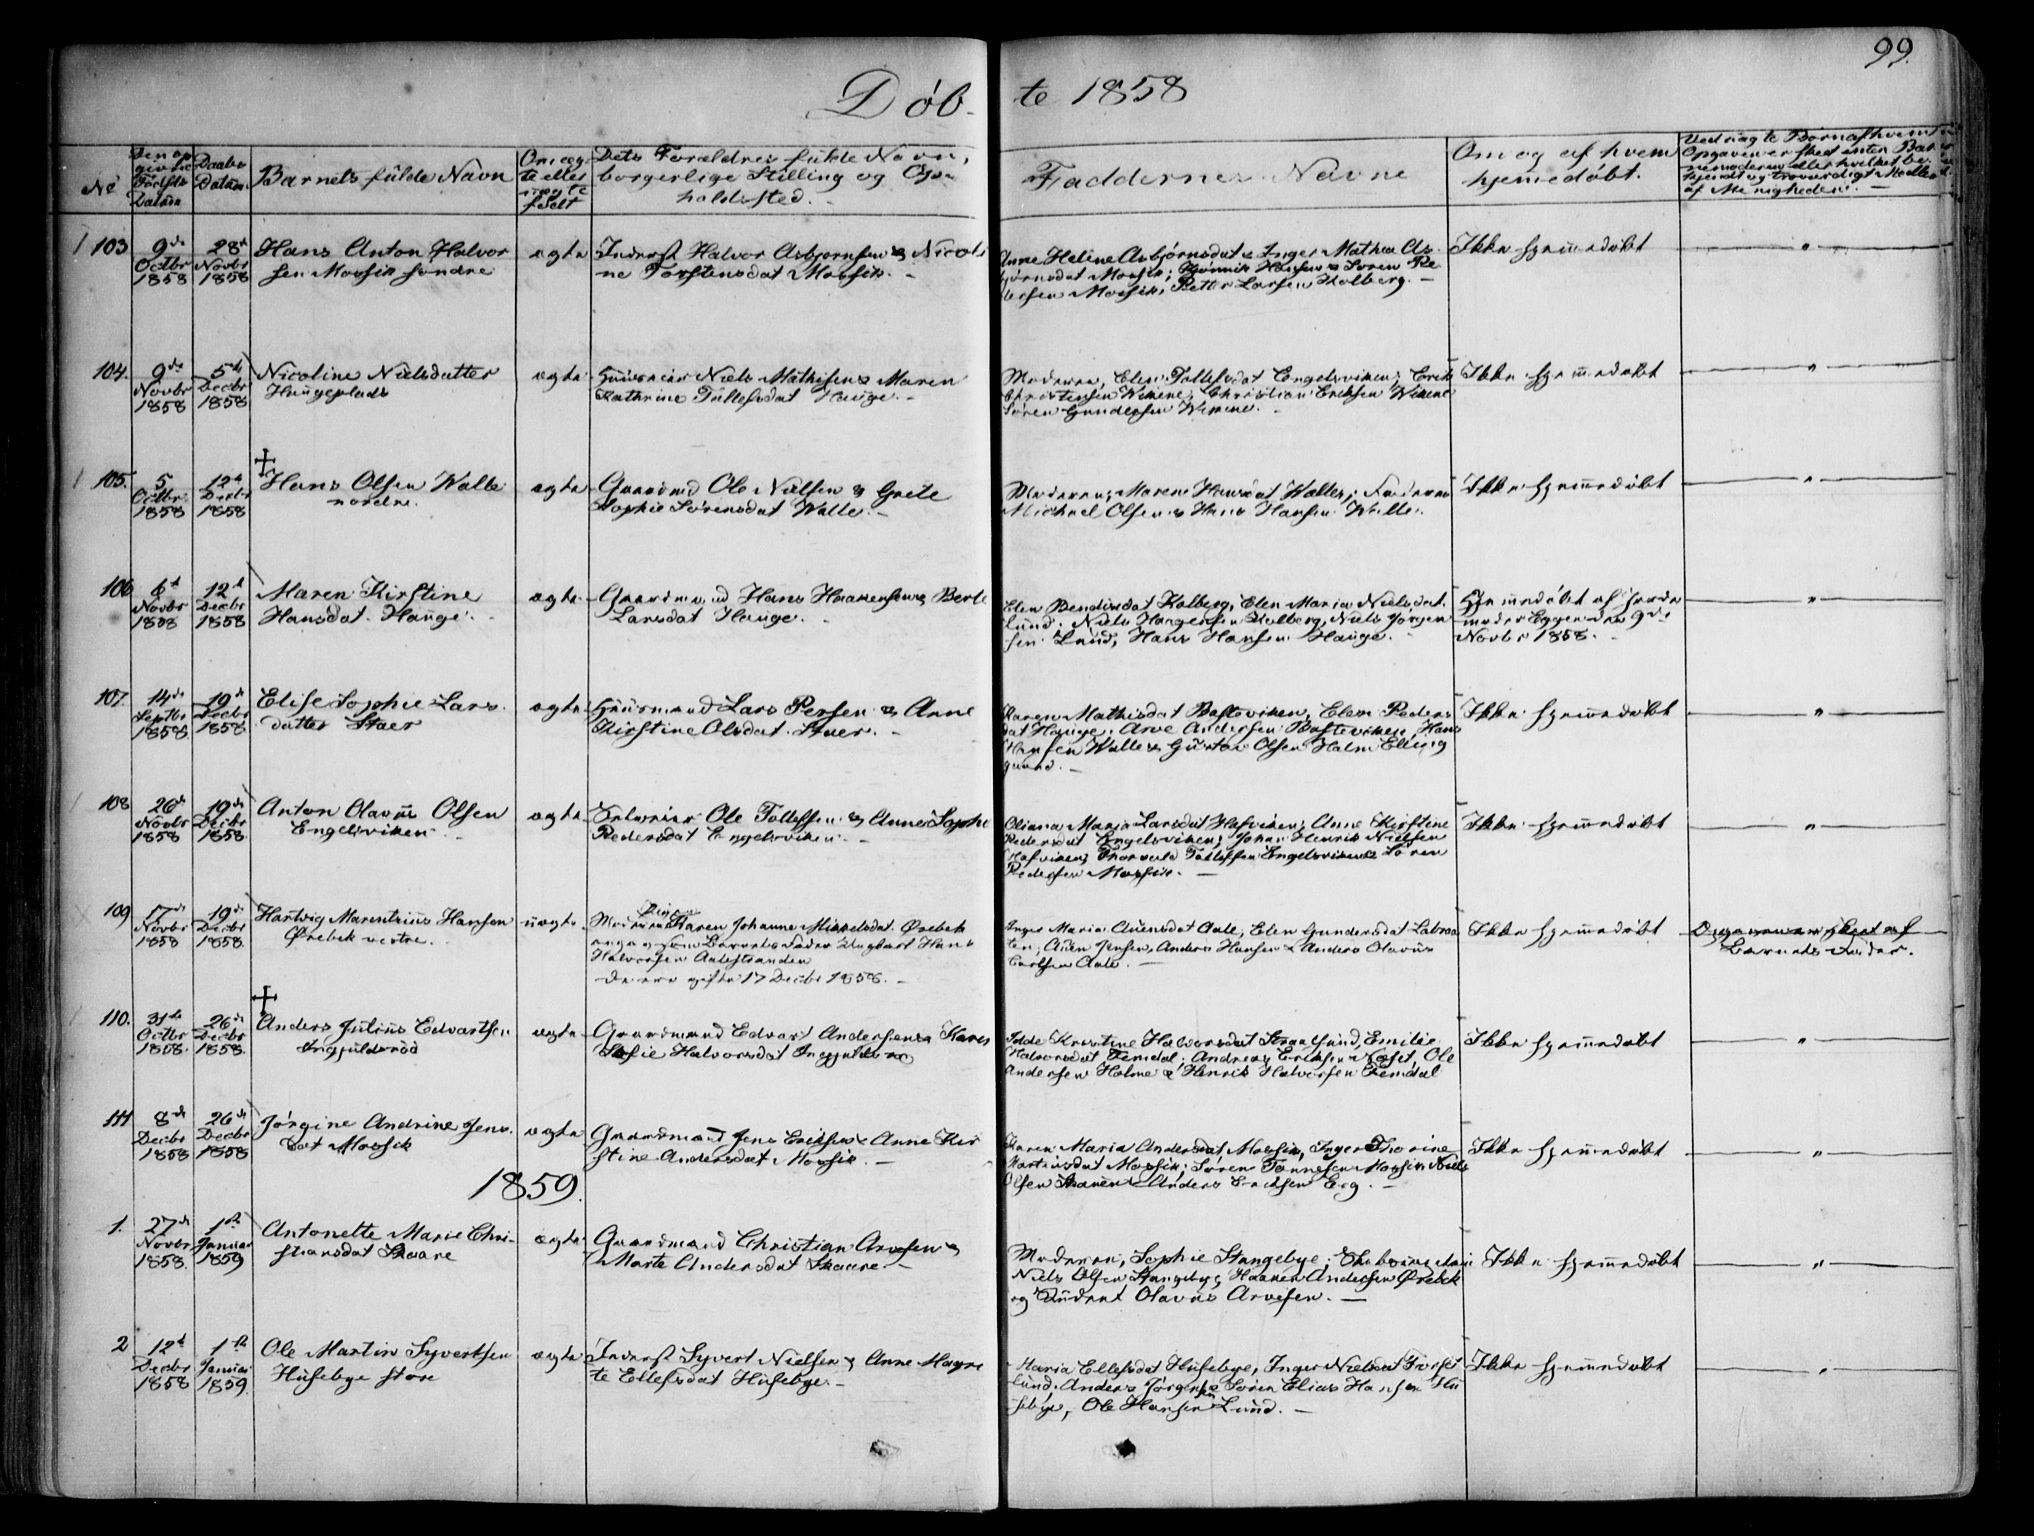 99.
Døb-
te 1858
No
Den op
givne
Fødsels
Datum
Daabs
Datum
Barnets fulde Navn
Om æg
te eller
uægte
født
Dets Forældres fulde Navn,
borgerlige Stilling og Op-
holdssted.
Faddernes Navne
Om og af hvem
hjemmedøbt.
Ved uægte Børn af hvem
Opgaven er skeet enten Bar
nemoderen eller hvilket be
kjendt og troværdigt Medlem
af Menigheden.
103
9de
Octbr
1858
28de
Novbr
1858
Hans Anton Halvor
sen Mossik søndre
ægte
Inderst Halvor Asbjørnsen & Nicoli
ne Torstensdat Mossik.
Anne Heline Asbjørnsdat & Inger Mathea As
bjørnsdat Mossik; Hansen & Søren Pe
tersen Mossik, Petter Larsen Kolberg.
Ikke hjemmedøbt
104.
9de
Novbr
1858
5te
Decbr
1858
Nicoline Nielsdatter
Haugeplads
ægte
Huuseier Niels Mathisen & Maren
Kathrine Tollefsdat Hauge.
Moderen, Elen Tollefsdat Engelsviken; Erik
Christensen Wikene, Christian Eriksen Wikene
Søren Gundersen Wikene.
Ikke hjemmedøbt
105.
5
Octbr
1858
12te
Decbr
1858
Hans Olsen Walle
nordre.
ægte
Gaardmd Ole Nielsen & Grete
Sophie Sørensdat Walle.
Moderen, Maren Hansdat Walle; Faderen
Michael Olsen & Hans Hansen Walle.
Ikke hjemmedøbt
106
6te
Novbr
1858
12te
Decbr
1858
Maren Kirstine
Hansdat. Hauge.
ægte
Gaardmand Hans Haavensen & Berte
Larsdat Hauge.
Elen Bendixdat Kolberg, Elen Maria Nielsdat
Lund. Niels Kolberg, Niels Jørgen
sen Lund, Hans Hansen Hauge.
Hjemmedøbt af Jorde
moder Egger den 9de
Novbr 1858.
107.
14de
Septbr
1858
19de
Decbr
1858
Elise Sophie Lars
datter Staer
ægte
Huusmand Lars Persen & Anne
Kirstine Olsdat. Staer.
Karen Mathisdat Basteviken, Elen Peders
dat Hauge. Arve Andersen Basteviken, Hans
Hansen Walle & Gustav Olsen Holm Elling
gaard.
Ikke hjemmedøbt
108
26de
Novbr
1858
19de
Decbr
1858
Anton Olavus Olsen
Engelsviken
ægte
Selveier Ole Tollefsen & Anne Sophie
Pedersdat Engelsviken.
Oliana Maria Larsdat Hafviken; Anne Kirstine
Pedersdat Engelsviken; Johan Henrik Nielsen
Hafviken; Thorvald Tollefsen Engelsviken & Søren
Pedersen Mossik.
Ikke hjemmedøbt
109
17de
Novbr
1858
19de
Decbr
1858.
Hartvig Marentzius Hansen
Ørebek vestre.
uægte
Moderen Pigen Karen Johanne Mikkelsdat. Ørebek
angav som Barnets Fader Ungkarl Hans
Halvorsen Aalestranden
De ere gifte 17 Decbr 1858.
Inger Maria Auensdat Aale, Elen Gundersdat Labraa
ten; Auen Jensen, Anders Hansen & Anders Olavus
Carlsen Aale.
Ikke hjemmedøbt
Opgaven er skeet af
Barnets Fader.
110.
31te
Octbr
1858.
26de
Decbr
1858.
Anders Julius Edvartsen
Ingjulsrød
ægte
Gaardmand Edvart Andersen & Karen
Sofie Halvorsdat Ingjulsrød
Idde Kristine Halvorsdat Straalsund, Emilie
Halvorsdat Femdal; Andreas Eriksen Næset, Ole
Andersen Holme & Henrik Halvorsen Femdal
Ikke hjemmedøbt
111
8de
Decbr
1858
26de
Decbr
1858
Jørgine Andrine Jens
dat Mossik
ægte
Gaardmand Jens Eriksen & Anne Kir
stine Andersdat Mossik.
Karen Maria Andersdat Mossik, Inger Thorine
Martinsdat Mossik; Søren Tønnesen Mossik, Niels
Olsen Skaaren & Anders Erichsen Eeg.
Ikke hjemmedøbt
1859.
1.
27de
Novbr
1858.
1ste
Januar
1859
Antonette Marie Chri-
stiansdat Skaare
ægte
Gaardmand Christian Arvesen &
Marte Andersdat Skaare.
Moderen, Sophie Stangebye;
Niels Olsen Stangebye, Haaken Andersen Ørebek
og Student Olavus Arvesen.
Ikke hjemmedøbt
2
12te
Decbr
1858
1ste
Januar
1859
Ole Martin Syvertsen
Husebye store
ægte
Inderst Syvert Nielsen & Anne Magre
te Ellefsdat Husebye.
Maria Ellefsdat Husebye, Inger Nielsdat Torset
lund; Anders Jørgensen & Søren Elias Hansen Hu
sebye, Ole Hansen Lund.
Ikke hjemmedøbt